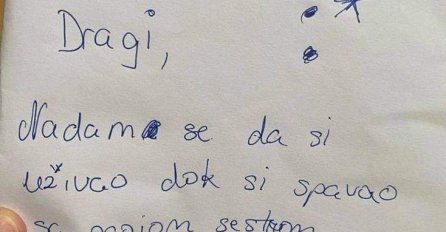 Dragi,
Nadam se da si
uživao dok si spavao
sa mojom sestrom